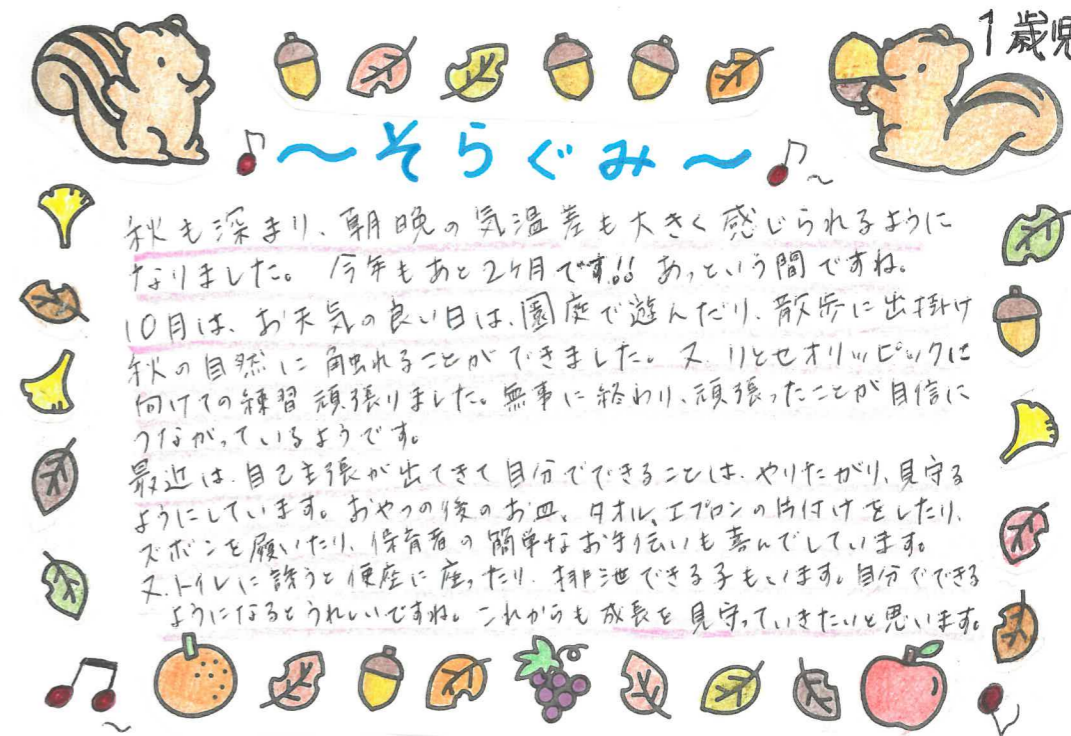 1歳児
～そらぐみ～
秋も深まり、朝晩の気温差も大きく感じられるように
なりました。今年もあと2ヶ月です!! あっという間ですね。
10月は、お天気の良い日は、園庭で遊んだり、散歩に出掛け
秋の自然に触れることができました。又、りとせオリンピックに
向けての練習頑張りました。無事に終わり、頑張ったことが自信に
つながっているようです。
最近は、自己主張が出てきて自分でできることは、やりたがり、見守る
ようにしています。おやつの後のお皿、タオル、エプロンの片付けをしたり、
ズボンを履いたり、保育者の簡単なお手伝いも喜んでしています。
又、トイレに誘うと便座に座ったり、排泄できる子もいます。自分でできる
ようになるとうれしいですね。これからも成長を見守っていきたいと思います。